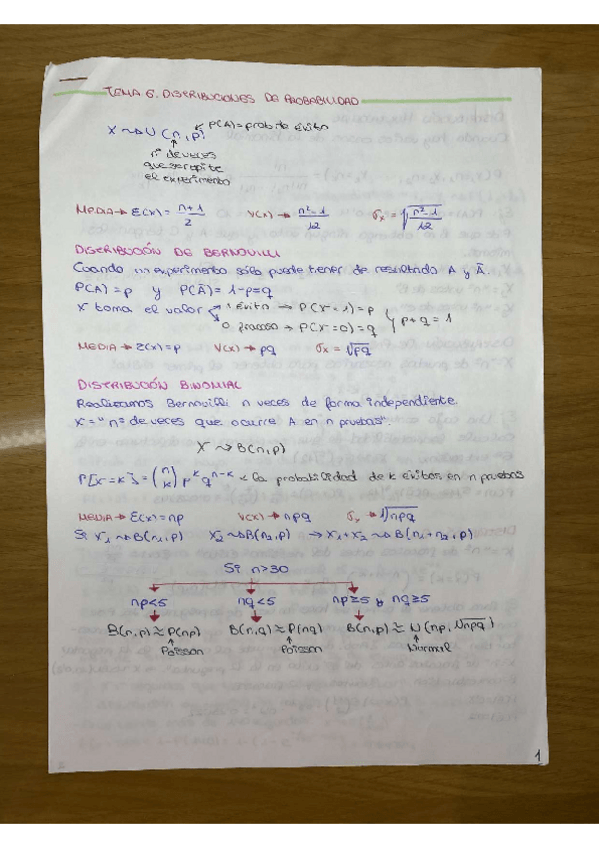 TEMA 6. DISTRIBUCIONES DE PROBABILIDAD
X ~> U (n, p) ← P(A) = prob de éxito
nº de veces
que se repite
el experimento
MEDIA → E(x) = n+1/2   V(x) → n²-1/12   σx = √(n²-1/12)
DISTRIBUCIÓN DE BERNOUILLI
Cuando un experimento sólo puede tener de resultado A y Ā.
P(A) = p y P(Ā) = 1-p = q
X toma el valor 1 éxito → P(X=1) = p
0 fracaso → P(X=0) = q } p+q = 1
MEDIA → E(x) = p   V(x) → pq   σx = √pq
DISTRIBUCIÓN BINOMIAL
Realizamos Bernouilli n veces de forma independiente.
X = "nº de veces que ocurre A en n pruebas".
X ~> B(n, p)
P[X=K] = (n K) p^K q^n-K < La probabilidad de K éxitos en n pruebas
MEDIA → E(x) = np   V(x) → npq   σx → √npq
Si X1 ~> B(n1, p)   X2 ~> B(n2, p) → X1 + X2 ~> B(n1 + n2, p)
Si n>30
np<5   nq<5   np≥5 y nq≥5
B(n, p) ≈ P(np)   B(n, q) ≈ P(nq)   B(n, p) ≈ N(np, √npq)
Poisson   Poisson   Normal
1